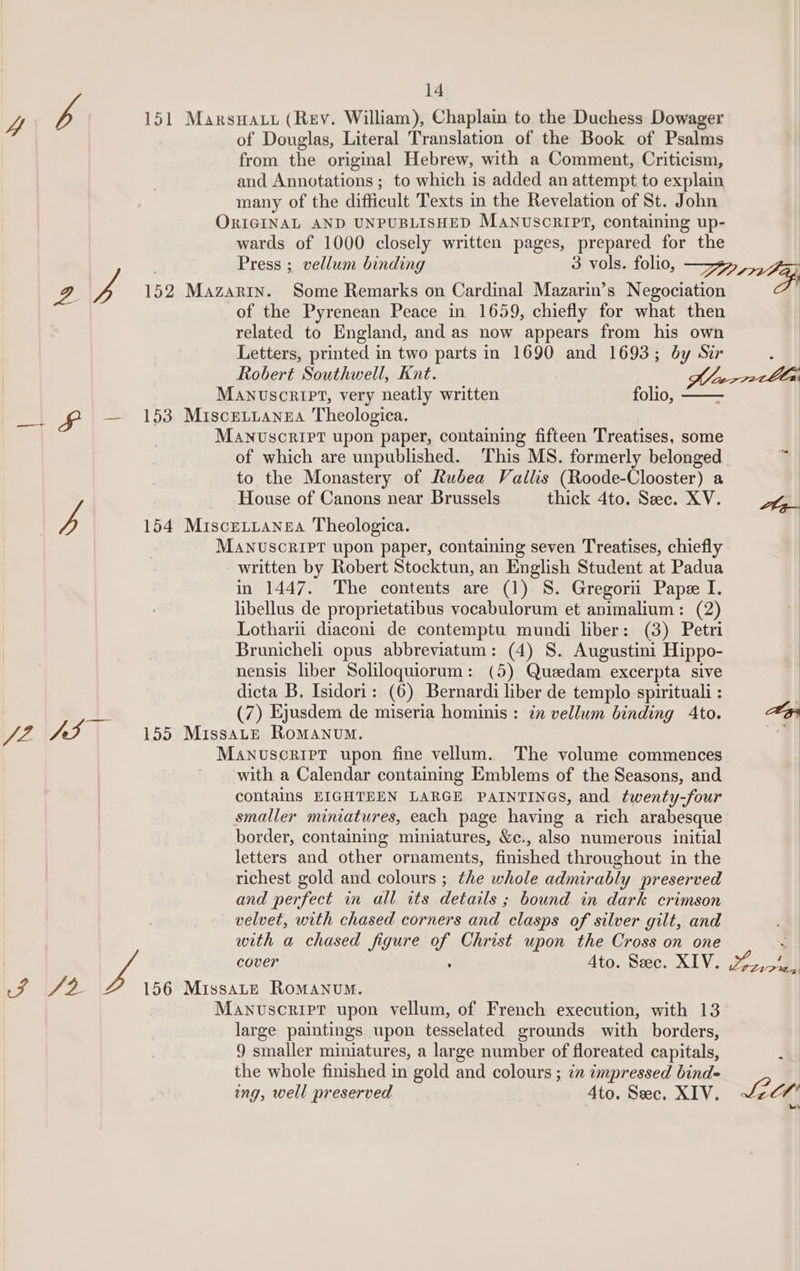 14
151 Marshall (Rev. William), Chaplain to the Duchess Dowager
of Douglas, Literal Translation of the Book of Psalms
from the original Hebrew, with a Comment, Criticism,
and Annotations; to which is added an attempt to explain
many of the difficult Texts in the Revelation of St. John
Original and unpublished Manuscript, containing up-
wards of 1000 closely written pages, prepared for the
Press; vellum binding 3 vols. folio,
152 Mazarin. Some Remarks on Cardinal Mazarin's Negociation
of the Pyrenean Peace in 1659, chiefly for what then
related to England, and as now appears from his own
Letters, printed in two parts in 1690 and 1693; by Sir
Robert Southwell, Knt.
Manuscript, very neatly written folio, ——
— 8 — 153 Miscellanea Theologica.
Manuscript upon paper, containing fifteen Treatises, some
of which are unpublished. This MS. formerly belonged
to the Monastery of Rubea Vallis (Roode-Clooster) a
House of Canons near Brussels thick 4to. Sæc. XV.
154 Miscellanea Theologica.
Manuscript upon paper, containing seven Treatises, chiefly
written by Robert Stocktun, an English Student at Padua
in 1447. The contents are (1) S. Gregorii Papæ I.
libellus de proprietatibus vocabulorum et animalium: (2)
Lotharii diaconi de contemptu mundi liber: (3) Petri
Brunicheli opus abbreviatum: (4) S. Augustini Hippo-
nensis liber Soliloquiorum: (5) Quædam excerpta sive
dicta B. Isidori: (6) Bernardi liber de templo spirituali:
(7) Ejusdem de miseria hominis: in vellum binding 4to.
12 15 155 Missale Romanum.
Manuscript upon fine vellum. The volume commences
with a Calendar containing Emblems of the Seasons, and
contains EIGHTEEN LARGE PAINTINGS, and twenty-four
smaller miniatures, each page having a rich arabesque
border, containing miniatures, &c., also numerous initial
letters and other ornaments, finished throughout in the
richest gold and colours; the whole admirably preserved
and perfect in all its details; bound in dark crimson
velvet, with chased corners and clasps of silver gilt, and
with a chased figure of Christ upon the Cross on one
cover 4to. Sæc. XIV.
3 12 6 156 Missale Romanum.
Manuscript upon vellum, of French execution, with 13
large paintings upon tesselated grounds with borders,
9 smaller miniatures, a large number of floreated capitals,
the whole finished in gold and colours; in impressed bind-
ing, well preserved 4to. Sæc. XIV.